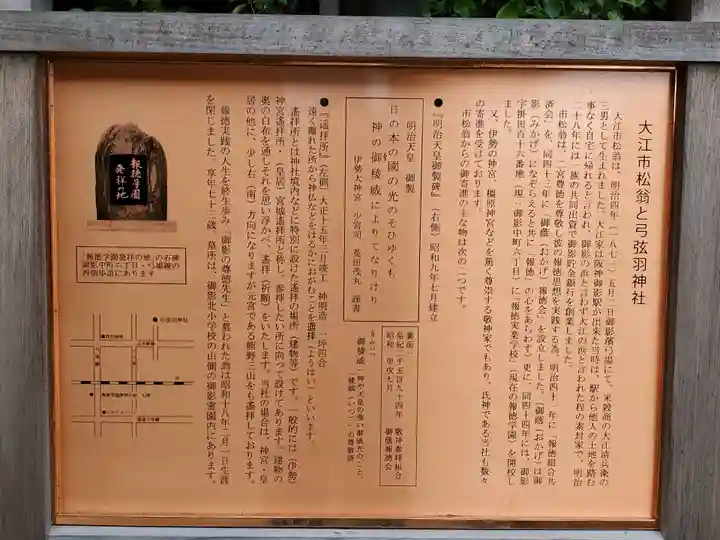 大江市松翁と弓弦羽神社
大江市松翁は、明治四年(一八七一)五月二日御影濱弓場にて、米穀商の大江清兵衛の
三男として生まれました。大江家は阪神御影駅が出来た当時は、駅から他人の土地を踏む
事なく自宅に帰れると言われ、御影の浜と言わず大江の浜と言われた程の素封家で、明治
二十八年には一族の共同出資で御影貯金銀行を創業しました。
市松翁は、二宮尊徳を尊敬し彼の報徳思想を実践する為、明治四十一年に「報徳組合共
済会」を、同四十三年に「御蔭(おかげ)報徳会」を設立しました。(御蔭(おかげ)は御
影(みかげ)になぞらえると共に「報徳」の心をあらわす)更に、同四十四年には、御影
字掛田百十六番地(現・御影中町六丁目)に「報徳実業学校」(現在の報徳学園)を開校し
ました。
又、伊勢の神宮・橿原神宮などを篤く尊崇する敬神家でもあり、氏神である当社も数々
の寄進を受けております。
市松翁からの御寄進の主な物は次の二つです。
●『明治天皇御製碑』(右側) 昭和九年七月建立
明治天皇 御製
日の本の國の光のそひゆくも
神の御稜威によりてなりけり
伊勢大神宮 少宮司 荒田茂丸 謹書
裏面
皇紀二千五百九十四年 敬神参拝組合
昭和 甲戌七月 御蔭報徳会
みいつ
御稜威…神や天皇の強い御威光のこと、
稜威(いつ)の尊敬語
●『遥拝所』(左側) 大正十五年三月竣工 神明造 一坪四合
遠く離れた所から神仏などをはるかにおがむことを遙拝(ようはい)といいます。
遙拝所とは神社境内などに特別に設けた遙拝の場所(建物等)です。一般的には(伊勢)
神宮遙拝所・(皇居)宮城遙拝所と称し、参拝したい所に向って設けてあります。建物の
奥の白布を通しそれを思い浮かべ、遙拝(祈願)をいたします。当社の場合は、神宮・皇
居の他に、少し右(南)方向になりますが元宮である熊野三山をも遙拝しております。
報徳実践の人生を終生歩み「御影の尊徳先生」と慕われた翁は昭和十八年二月一日生涯
を閉じました。享年七十三歳。墓所は、御影北小学校の山側の御影霊園内にあります。
報徳学園
発祥の地
「報徳学園発祥の地」の石碑
御影中町六丁目・弓場線の
西側歩道にあります